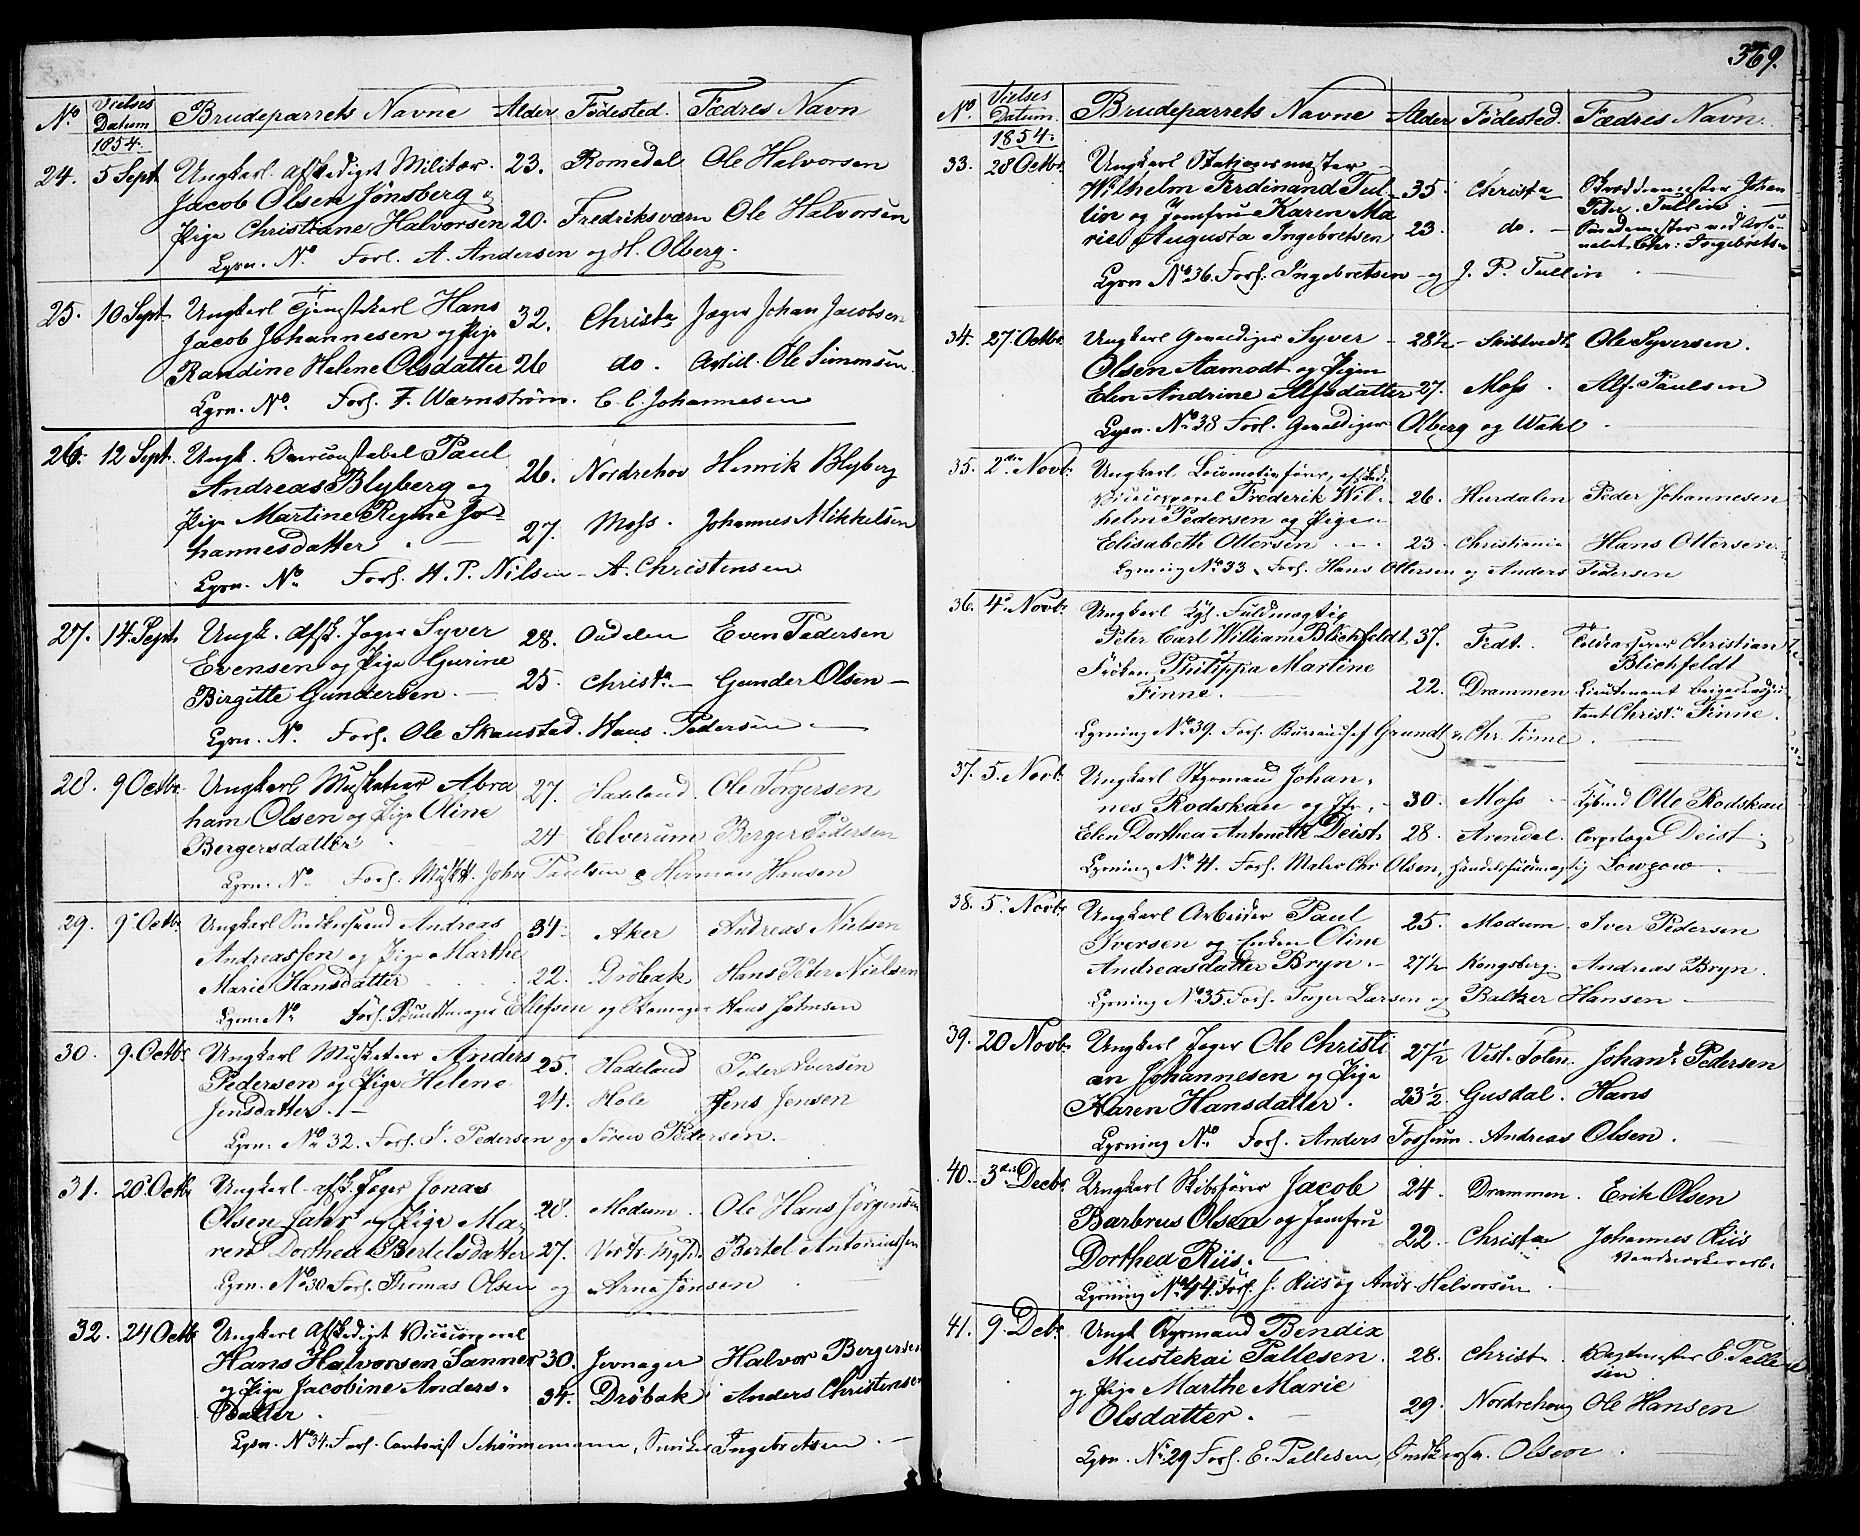 No Vielses Datum 1854. Brudeparrets Navne Alder Fødested. Fædres Navn
24. 5 Sept. Ungkarl afskediget Militær 23. Romedal Ole Halvorsen
Jacob Olsen Jønsberg
Pige Christiane Halvorsen 20. Fredriksværn Ole Halvorsen
Lysn. No Forl. A. Andersen og H. Olberg.
25. 10 Sept. Ungkarl Tjenestkarl Hans 32. Christa Jæger Johan Jacobsen
Jacob Johannesen og Pige
Randine Helene Olsdatter 26 do. Ole Simensen
Lysn. No. Forl. F. Warnstrøm. C. C. Johannesen
26. 12 Sept. Ungk. Overconstabel Paul 26. Nordrehov Henrik Blyberg
Andreas Blyberg og
Pige Martine Regine Jo- 27. Moss. Johannes Mikkelsen
hannesdatter.
Lysn. No. Forl. H. P. Nilsen – A. Christensen
27. 14 Sept. Ungk. afsk. Jæger Syver 28. Oudalen Even Pedersen
Evensen og Pige Gurine
Birgitte Gundersen. 25. Christa Gunder Olsen
Lysn. No. Forl. Ole Skaustad. Hans Pedersen
28. 9 Octbr. Ungkarl Musketeer Abra 27. Hadeland. Ole Torgersen
ham Olsen og Pige Oline 24 Elverum Berger Pedersen
Bergersdatter
Lysn. No. Forl. Muskt. John Paulsen & Herman Hansen
29. 9 Octbr. Ungkarl Snedkersvend Andreas 34. Aker Andreas Nielsen
Andreassen og Pige Marthe
Marie Hansdatter 22. Drøbak Hans Peter Nielsen
Lysn. No Forl. Buntmager Ellefsen og Skomager Hans Johnsen
30. 9. Octbr. Ungkarl Musketeer Anders 25. Hadeland Peder Iversen
Pedersen og Pige Helene 24. Hole Jens Jensen
Jensdatter.
Lysn. No 32. Forl. I. Pedersen og Søren Pedersen.
31. 20 Octbr Ungkarl afsk. Jæger Jonas
Olsen Jahr og Pige Ma- 28. Modum. Ole Hans Jørgensen
ren Dorthea Bertelsdatter 27. Bertel Antoniussen
Lysn. No 30 Forl. Thomas Olsen og Arne Jensen
32. 24 Octbr Ungkarl Afskediget Vicecorporal
Hans Halvorsen Sanner 30. Jevnager Halvor Bergersen
og Pige Jacobine Anders- 34. Drøbak Anders Christensen
datter.
Lysn. No 34. Forl. Contorist Schønnemann, Snedker Ingebretsen.
369.
No. Vielses Datum. 1854. Brudeparrets Navne Alder Fødested. Fædres Navn
33. 28 Octbr. Ungkarl Stationsmester
Wilhelm Ferdinand Tul- 35. Christa Johan
lin og Jomfru Karen Ma Peter Tullin.
rie Augusta Ingebretsen 23. do. Chr: Ingebretsen
Lysn No 36. Forl. Ingebretsen og J. P. Tullin
34. 27 Octbr. Ungkarl Gevaldiger Syver 28½ Skibtvedt Ole Syversen.
Olsen Aamodt og Pigen
Elen Andrine Alfsdatter 27. Moss. Alf. Paulsen
Lysn. No 38 Forl. Gevaldiger Olberg og Wahl
35. 2den Novb. Ungkarl Locomotivfører, afskd.
Vicecorporal Frederik Wil- 26. Hurdalen Peder Johannesen
helm Pedersen og Pige
Elisabeth Ottersen 23. Christiania Hans Ottersen
Lysning No 33. Forl. Hans Ottersen og Anders Pedersen
36. 4 Novb. Ungkarl Kgl. Fuldmægtig
Peter Carl William Blichfeldt 37. Fedt. Christian
Frøken Philippa Martine Blichfeldt
Finne. 22. Drammen Lieutenant Brigadeadju
tant Christn Finne.
Lysning No 39. Forl. Bureauchef Grundt & Chr. Finne
37. 5. Novb. Ungkarl Styrmand Johan-
nes Rodskau og Pige 30. Moss Otte Rodskau
Elen Dorthea Antonette Deist. 28. Arendal. Deist
Lysning No 41. Forl. Maler Chr Olsen, Handelsfuldmægtig Lowzow
38. 5. Novb. Ungkarl Arbeider Paul 25. Modum Iver Pedersen
Iversen og Enken Oline
Andreasdatter Bryn. 27½ Kongsberg. Andreas Bryn.
Lysning No 35. Forl. Larsen og Baltzer Hansen
39. 20 Novb. Ungkarl Jæger Ole Christi 27½ Vest. Toten. Johans Pedersen
an Johannesen og Pige
Karen Hansdatter. 23½ Gusdal. Hans
Lysning No. Forl. Anders Fossum. Andreas Olsen.
40. 3die Decbr. Ungkarl Skibsfører Jacob 24. Drammen. Erik Olsen
Barbrus Olsen og Jomfru
Dorthea Riis. 22. Christa Johannes Riis
Lysning No 44. Forl. J. Riis og Ands Halvorsen
41. 9. Debr. Ungk Styrmand Bendix
Mustekai Pallesen. 28. Christ. E. Palle
sen
og Pige Marthe Marie
Olsdatter. 29. Nordrehoug Ole Hansen
Lysn. No 29 Forl. E. Pallesen, Olsen.